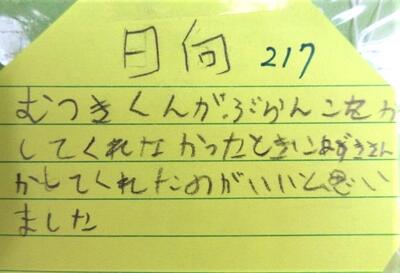 日向 217
むつきくんがぶらんこをか
してくれなかったときにあずきさん
かしてくれたのがいいと思い
ました